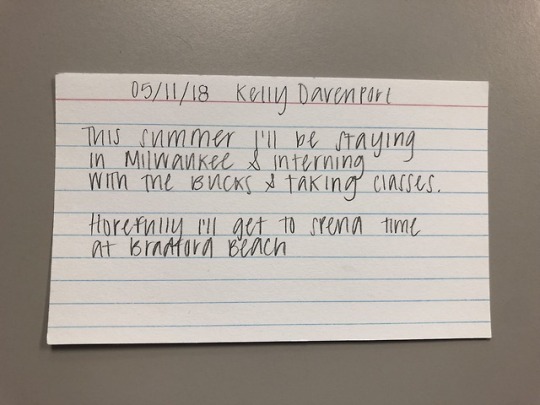 05/11/18 Kelly Davenport
This summer I'll be staying
in Milwaukee & interning
with the Bucks & taking classes.
Hopefully i'll get to spend time
at Bradford Beach